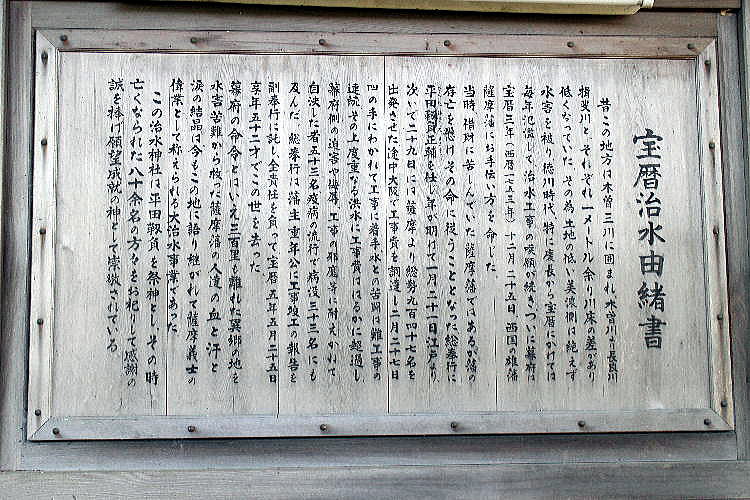 宝暦治水由緒書
昔この地方は木曽三川に囲まれ木曽川より長良川
揖斐川と、それぞれ一メートル余り川床の差があり
低くなっていた その為土地の低い美濃側は絶えず
水害を被り徳川時代、特に慶長から宝暦にかけては
毎年氾濫して、治水工事の嘆願が続き、ついに幕府は
宝暦三年(西暦一七五三年)十二月二十五日 西国の雄藩
薩摩藩にお手伝い方を命じた
当時、借財に苦しんでいた薩摩藩ではあるが藩の
存亡を懸け その命に従うこととなった総奉行に
平田靱負正輔を任じ年が明けて一月二十一日江戸より
次いで二十九日には薩摩より総勢九百四十七名を
出発させた途中大阪で工事費を調達し二月二十七日
四の手にわかれて工事に着手水との苦闘は難工事の
連続その上度重なる洪水に工事費ははるかに超過し
幕府側の迫害や機傳工事の邪魔等に耐えかねて
自決した者五十三名疫病の流行で病没三十三名にも
及んだ、総奉行は藩主重年公に工事竣工の報告を
副奉行に託し全責任を負って宝暦五年五月二十五日
享年五十二才でこの世を去った
幕府の命令とはいえ三百里も離れた異郷の地を
水害苦難から救った薩摩藩の人達の血と汗と
涙の結晶は今もこの地に語り継がれて薩摩義士の
偉業として称えられる大治水事業であった
この治水神社は平田靱負を祭神とし、その時
亡くなられた八十余名の方々をお祀りして感謝の
誠を捧げ願望成就の神として崇敬されている